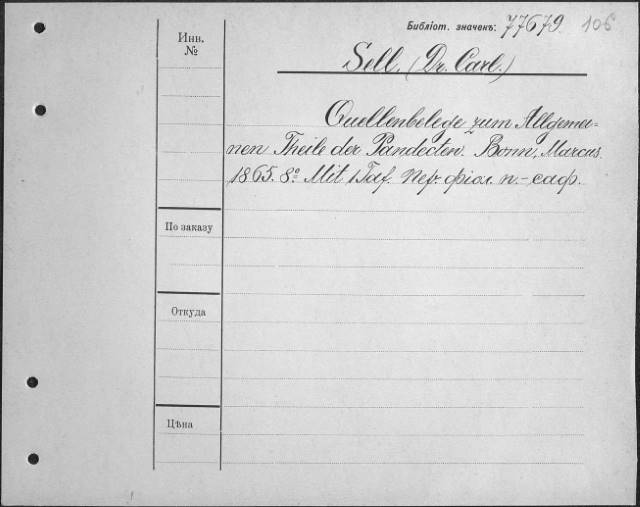 Библіот. значекъ: 77679. 106
Инв.
№
Sell. (Dr. Carl.)
Quellenbelege zum Allgemei-
nen Theile der Pandecten. Bonn, Marcus.
1865. 8º Mit 1 Taf. пер. фіол. п.-саф.
По заказу
Откуда
Цѣна